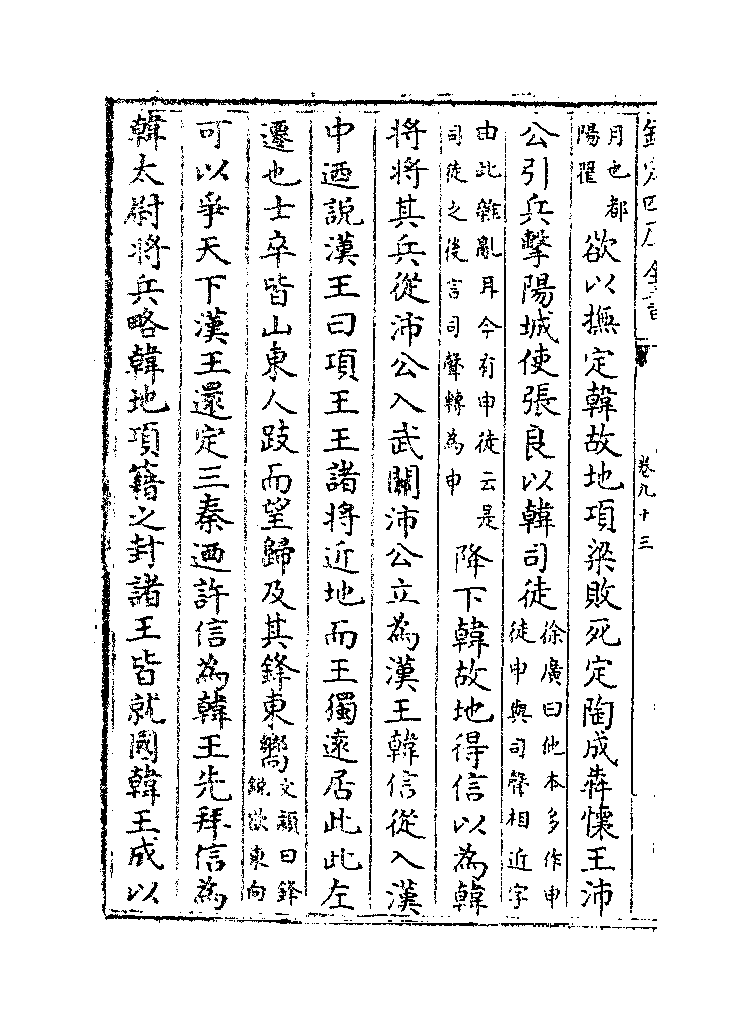 欽定四庫全書 卷九十三
月也都陽翟欲以撫定韓故地項梁敗死定陶成犇懷王沛
公引兵擊陽城使張良以韓司徒徐廣曰他本多作申徒申與司聲相近字
由此雜亂耳今有申徒云是司徒之後言司聲轉為申降下韓故地得信以為韓
將將其兵從沛公入武關沛公立為漢王韓信從入漢
中迺說漢王曰項王王諸將近地而王獨遠居此此左
遷也士卒皆山東人跂而望歸及其鋒東嚮文穎曰鋒銳欲東向
可以爭天下漢王還定三秦迺許信為韓王先拜信為
韓太尉將兵略韓地項籍之封諸王皆就國韓王成以